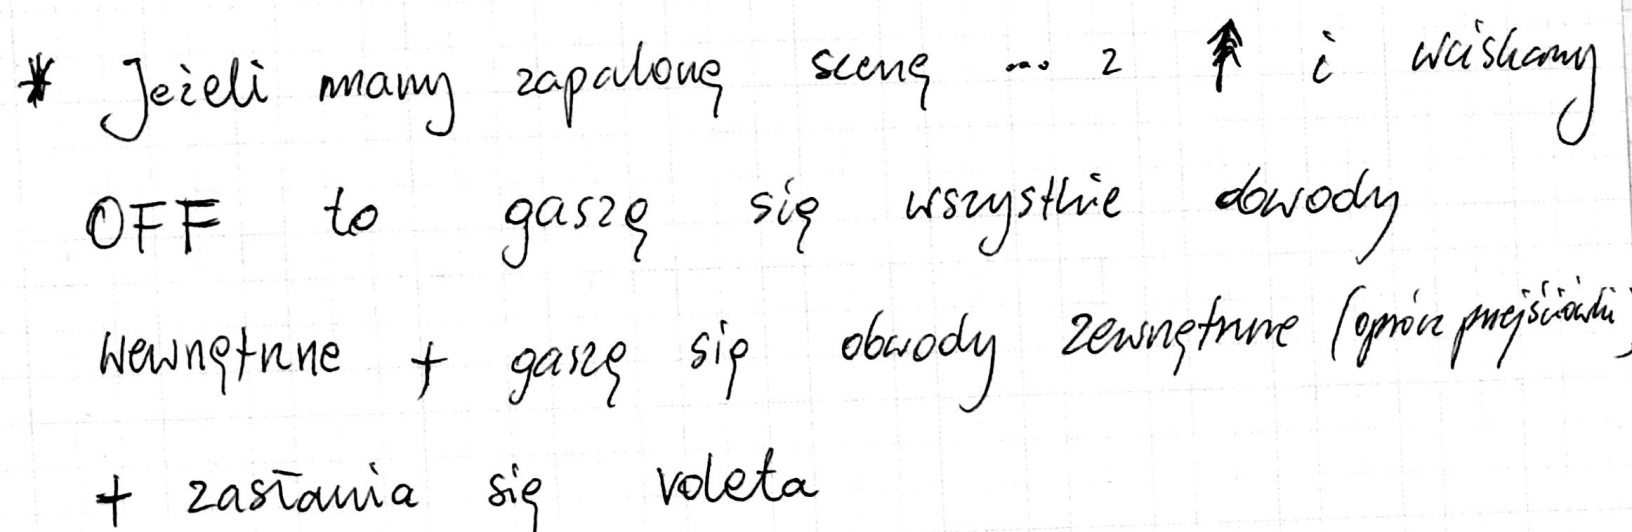 * Jeżeli mamy zapaloną scenę ... z ↑ i wciskamy
OFF to gaszą się wszystkie obwody
wewnętrzne + gaszą się obwody zewnętrzne (oprócz przejściówki)
+ zasłania się roleta